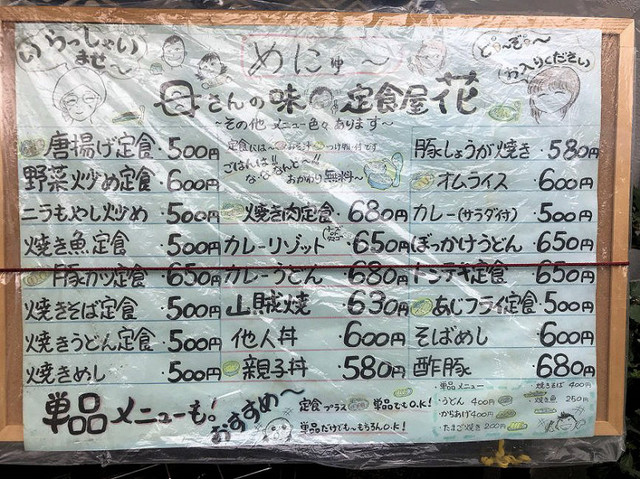 いらっしゃい
ませ〜
めにゅ〜
ど〜ぞ〜
お入りください
母さんの味 定食屋 花
〜その他 メニュー色々 あります〜
唐揚げ定食・500円
野菜炒め定食・600円
ニラもやし炒め・500円
焼き魚定食・500円
豚カツ定食・650円
焼きそば定食・500円
焼きうどん定食・500円
焼きめし・500円
定食には〜
つけ物 付です
ごはんは!!
な・な・なんと〜!!
おかわり無料〜
焼き肉定食・680円
カレーリゾット・650円
カレーうどん・680円
山賊焼・630円
他人丼・600円
親子丼・580円
豚しょうが焼き・580円
オムライス・600円
カレー(サラダ付)・500円
ぼっかけうどん・650円
トンテキ定食・650円
あじフライ定食・500円
そばめし・600円
酢豚・680円
単品メニューも!
おすすめ〜
定食プラス 単品でもO.K!
単品だけでも〜もちろんO.K!
・単品メニュー
・うどん 400円
・からあげ 400円
・たまご焼き 200円
・焼きそば 400円
・焼き魚 250円